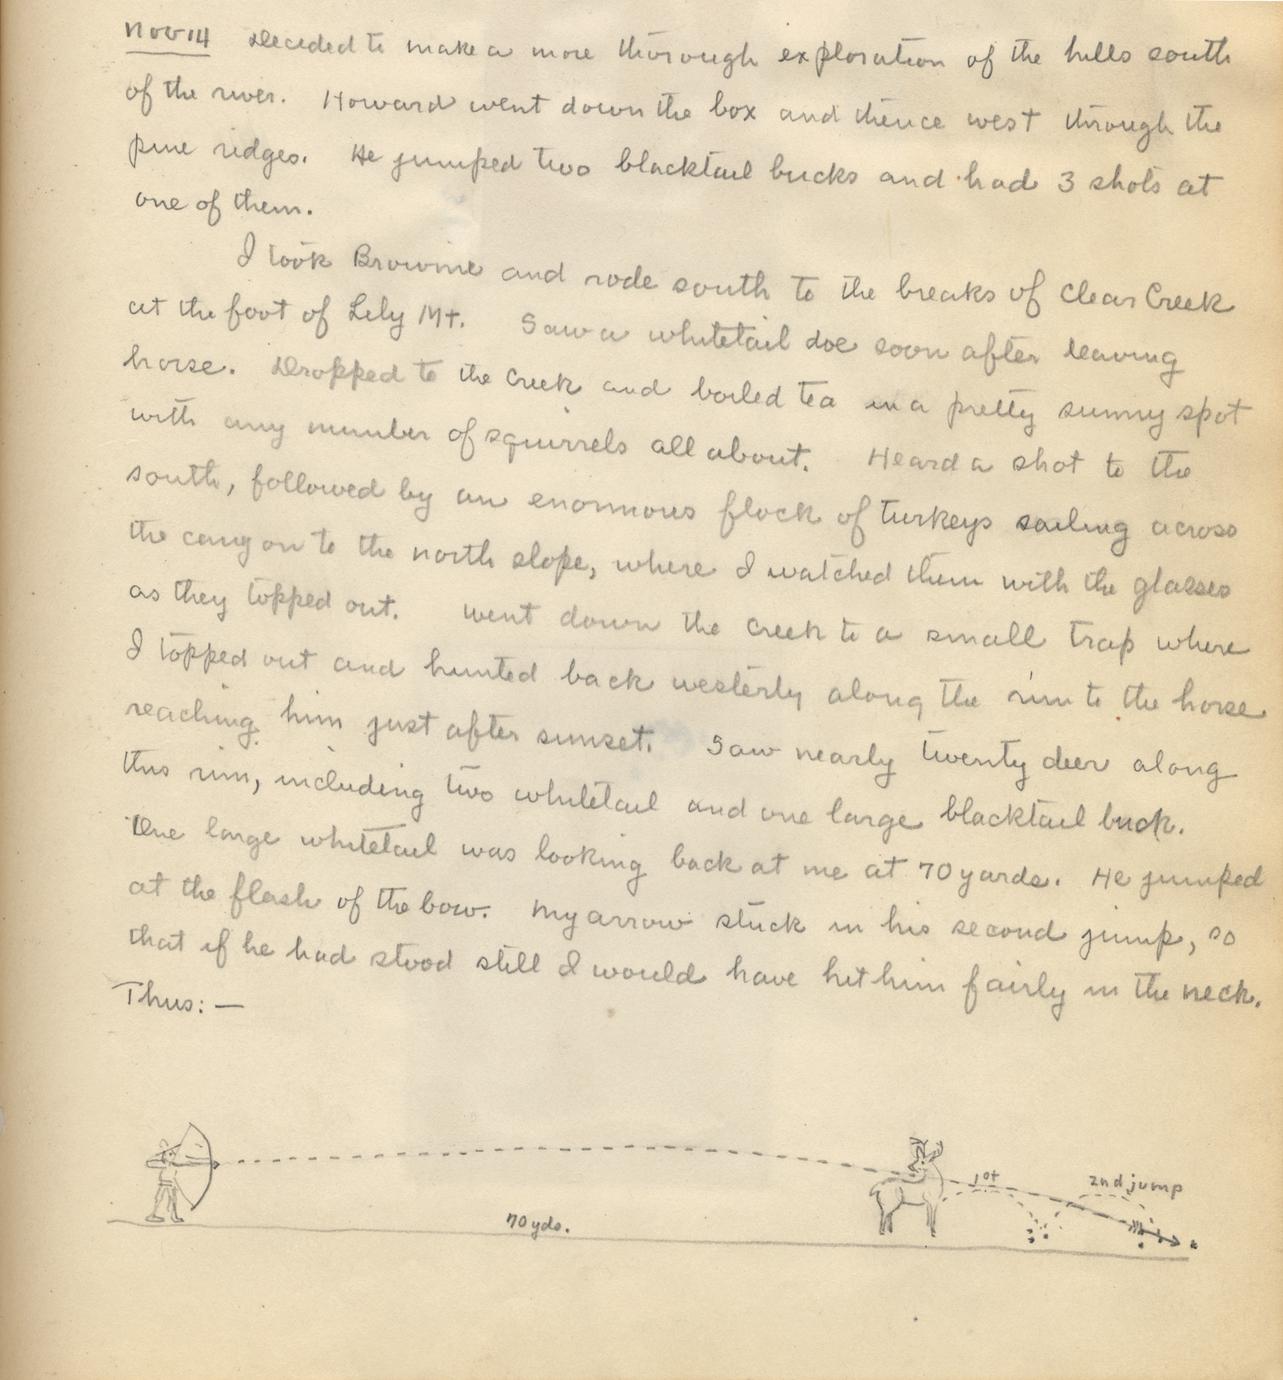 Nov 14 Decided to make a more thorough exploration of the hills south
of the river. Howard went down the box and thence west through the
pine ridges. He jumped two blacktail bucks and had 3 shots at
one of them.
I took Brownie and rode south to the breaks of Clear Creek
at the foot of Lily Mt. Saw a whitetail doe soon after leaving
horse. Dropped to the creek and boiled tea in a pretty sunny spot
with any number of squirrels all about. Heard a shot to the
south, followed by an enormous flock of turkeys sailing across
the canyon to the north slope, where I watched them with the glasses
as they topped out. Went down the creek to a small trap where
I topped out and hunted back westerly along the rim to the horse
reaching him just after sunset. Saw nearly twenty deer along
this rim, including two whitetail and one large blacktail buck.
One large whitetail was looking back at me at 70 yards. He jumped
at the flash of the bow. My arrow stuck in his second jump, so
that if he had stood still I would have hit him fairly in the neck.
Thus:—
1st
2nd jump
70 yds.